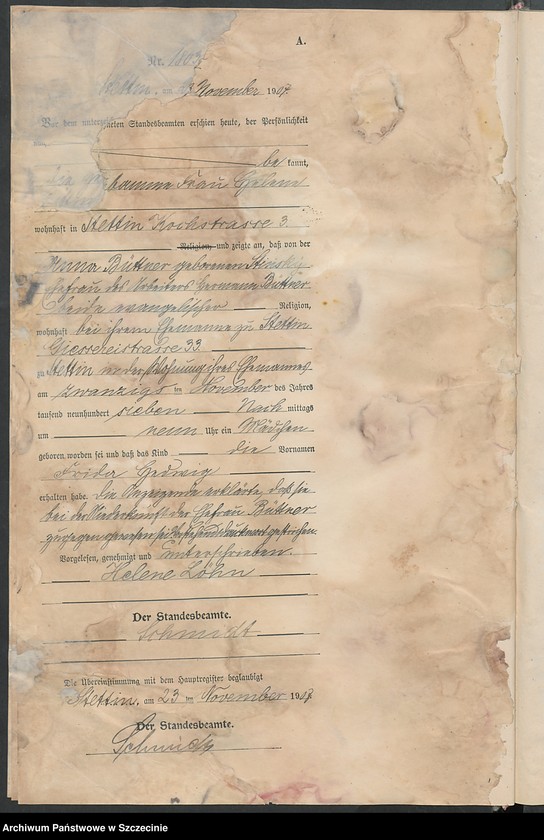 A.
Nr. 1803
Stettin, am 23 November 1907.
Vor dem unterzeichneten Standesbeamten erschien heute, der Persönlichkeit
be kannt,
die Hebamme Frau Helene
wohnhaft in Stettin Kochstrasse 3
Religion, und zeigte an, daß von der
Anna Büttner geborenen
Ehefrau des Arbeiters Hermann Büttner
beide evangelischer Religion,
wohnhaft bei ihrem Ehemanne zu Stettin
Giessereistrasse 33
zu Stettin in der Wohnung ihres Ehemannes
am zwanzigs ten November des Jahres
tausend neunhundert sieben Nach mittags
um neun Uhr ein Mädchen
geboren worden sei und daß das Kind die Vornamen
Frida Hedwig
erhalten habe. Die Anzeigende erklärte, daß sie
bei der Niederkunft der Ehefrau Büttner
zugegen gewesen sei. Vorstehend Druckwort gestrichen.
Vorgelesen, genehmigt und unterschrieben.
Helene Löhn
Der Standesbeamte.
Schmidt
Die Übereinstimmung mit dem Hauptregister beglaubigt
Stettin, am 23 ten November 1907.
Der Standesbeamte.
Schmidt
Archiwum Państwowe w Szczecinie